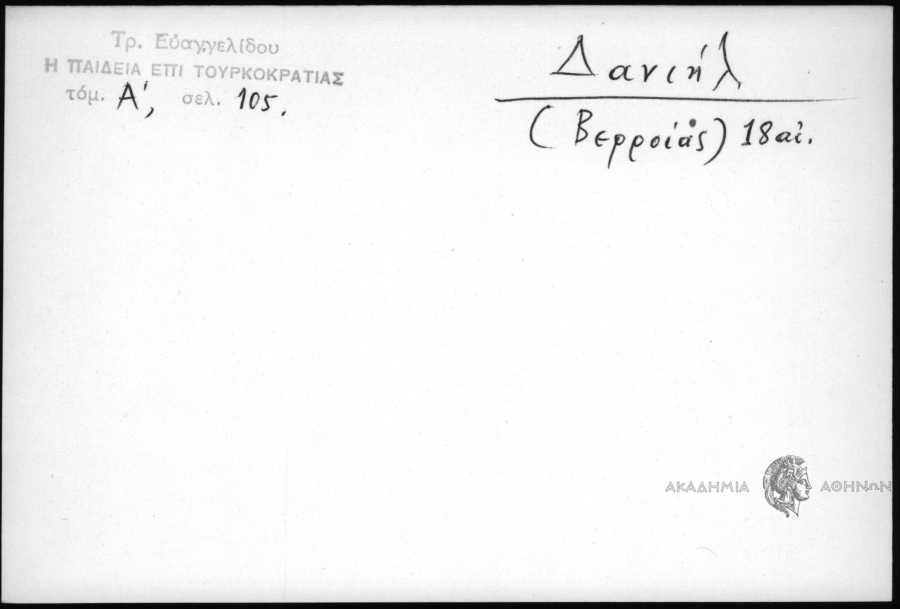 Τρ. Εὐαγγελίδου
Η ΠΑΙΔΕΙΑ ΕΠΙ ΤΟΥΡΚΟΚΡΑΤΙΑΣ
τόμ. Α', σελ. 105.
Δανιήλ
(Βερροίας) 18 αἰ.
ΑΚΑΔΗΜΙΑ ΑΘΗΝΩΝ